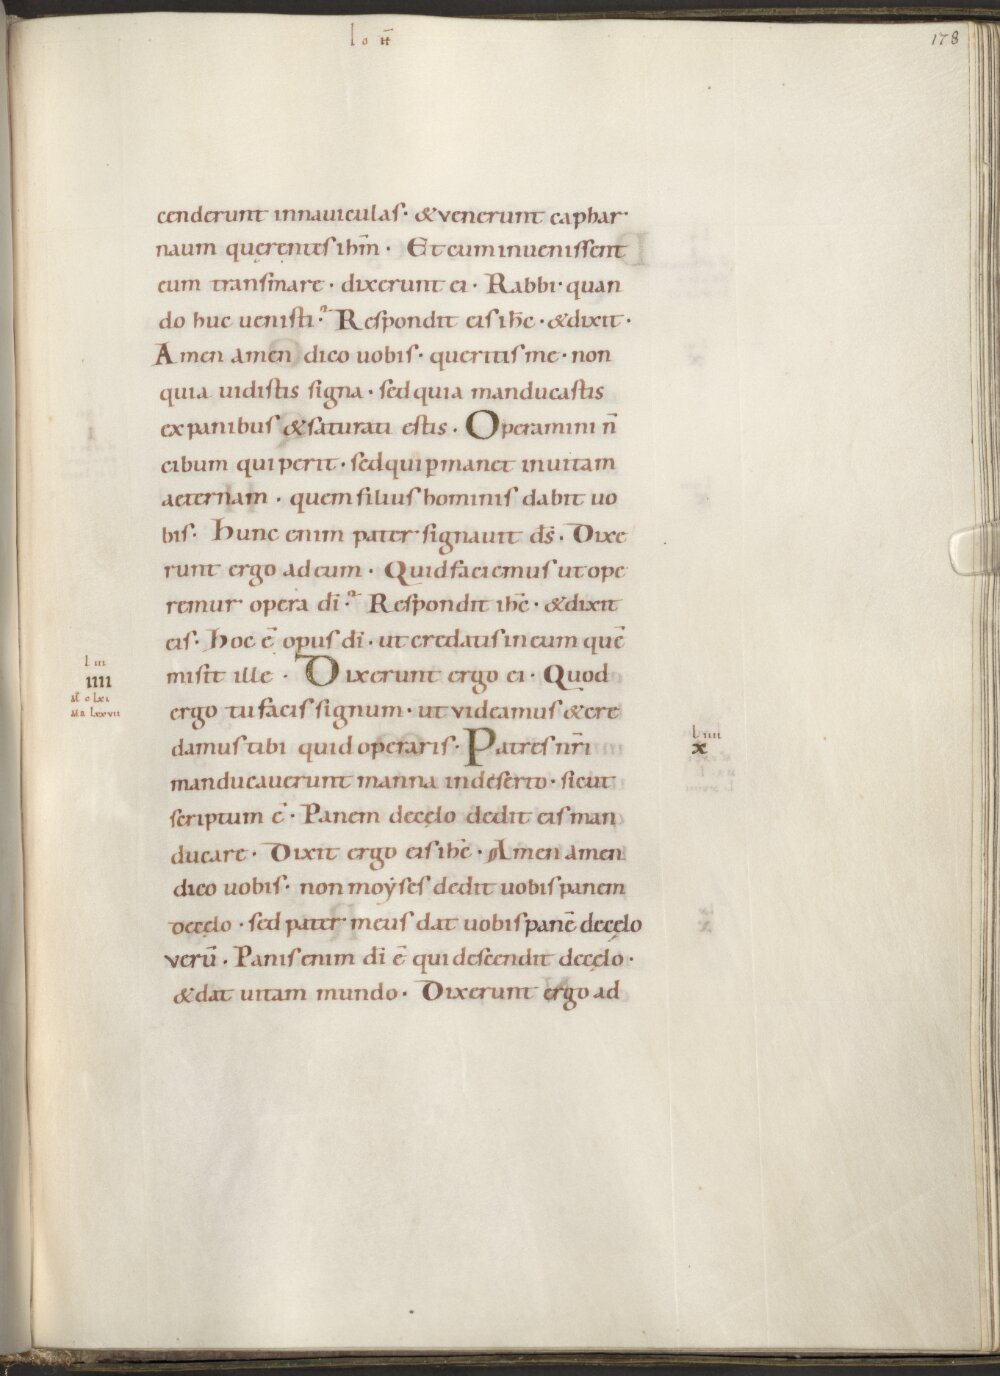 Ioħ
178
cenderunt innauiculas· &venerunt caphar
naum querentes ihm̄· Et cum inuenissent
eum transmare· dixerunt ei· Rabbi· quan
do huc uenisti? Respondit eis ihc̄· &dixit·
Amen amen dico uobis· queritis me· non
quia uidistis signa· sed quia manducastis
ex panibus &saturati estis· Operamini n̄
cibum qui perit· sed qui ꝑmanet inuitam
aeternam· quem filius hominis dabit uo
bis· Hunc enim pater signauit ds̄· Dixe
runt ergo ad eum· Quid faciemus ut ope
remur opera dī? Respondit ihc̄· &dixit
eis· Hoc ē opus dī· ut credatis in eum quē
l iii
IIII
Mt c lxi
Ma lxxvii
misit ille· Dixerunt ergo ei· Quod
ergo tu facis signum· ut videamus &cre
damus tibi quid operaris· Patres nr̄i
l iiii
x
manducauerunt manna indeserto· sicut
scriptum ē· Panem decęlo dedit eis man
ducare· Dixit ergo eis ihc̄· Amen amen
dico uobis· non moẏses dedit uobis panem
decęlo· sed pater meus dat uobis panē decęlo
verū· Panis enim dī ē qui descendit decęlo·
&dat uitam mundo· Dixerunt ergo ad